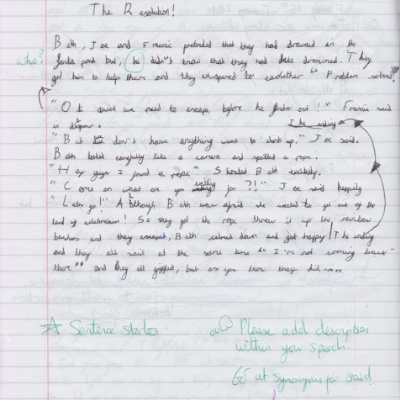 The Resolution!
Beth, Joe and Frannie pretended that they had drowned in the
who?
pond but, he didn't know that they had fake drowned. They
got him to help them and they whispered to eachother " Problem solved"
"Ok quick we need to escape before he finds out!" Frannie said
in
"But don't have anything want to climb up," Joe said.
Beth looked carefully like a camera and spotted a rope.
"Hey guys I found a rope" Shouted Beth excitedly.
"Come on what are you waiting for ?!" Joe said happily
"Lets go!" Although Beth was afraid she wanted to get out of the
land of celebration! So they got the rope threw it up the rainbow
and they escaped, Beth calmed down and got happy / The ending
and they all said at the same time "I'm not coming back
there" and they all giggled, but as you know they did....
Sentence starter
Please add description
within your speech.
at Synonyms for said